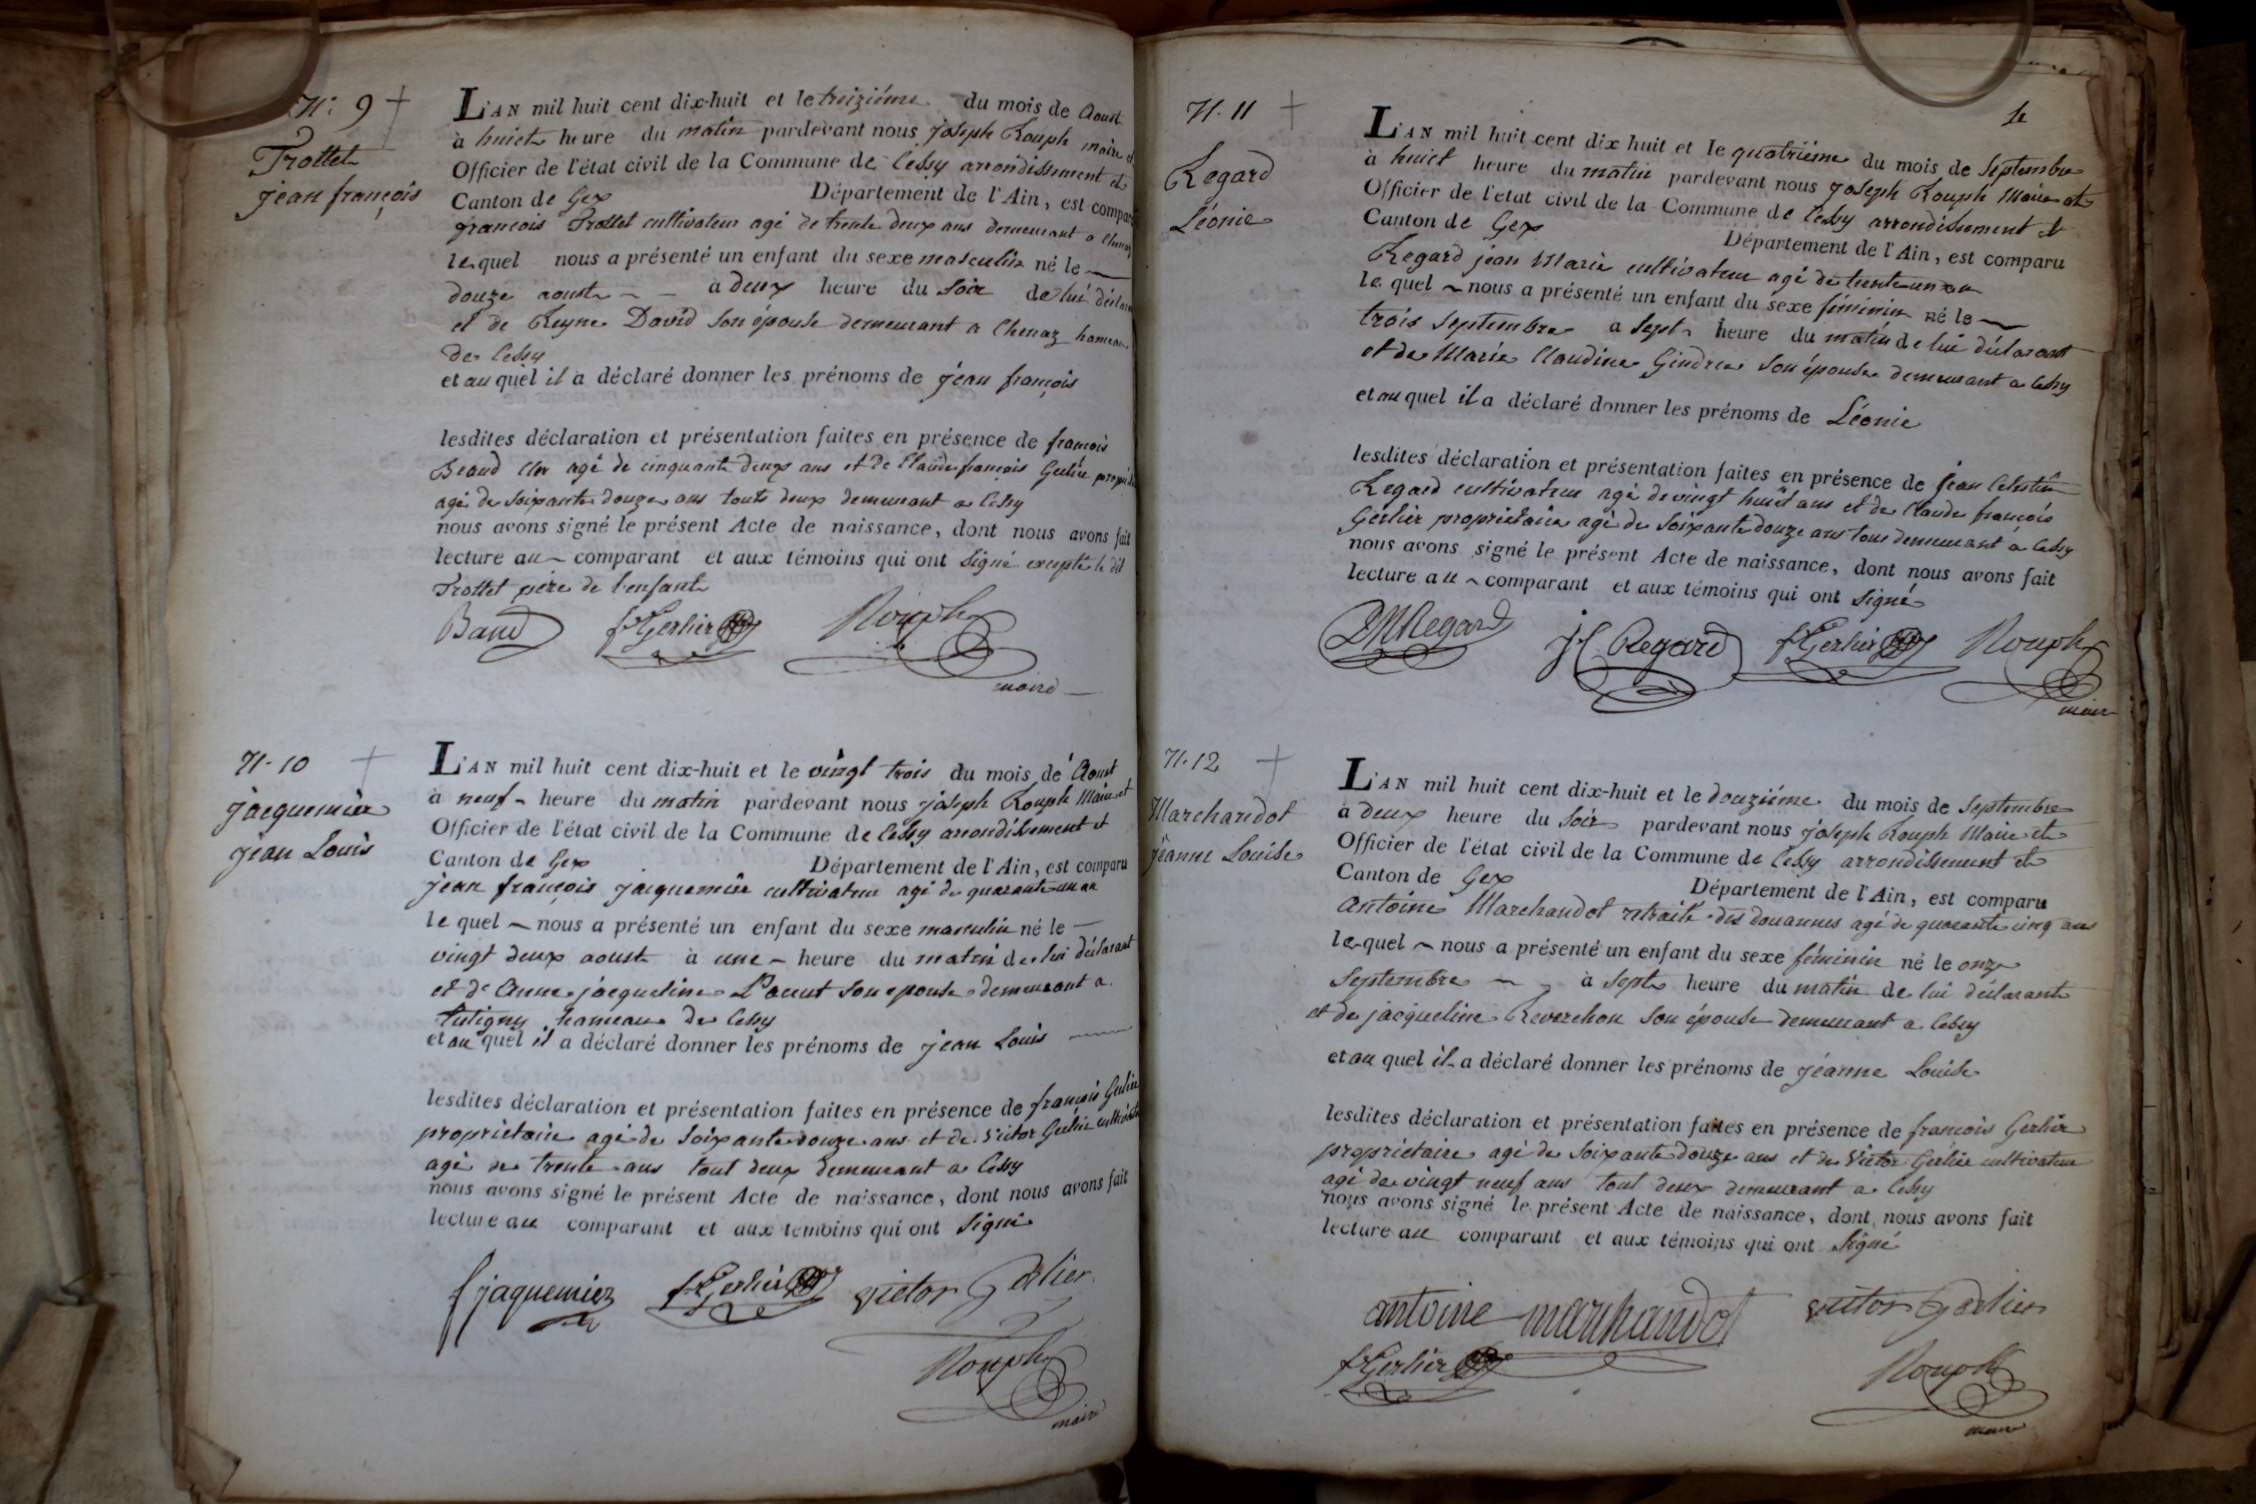 N: 9
Trottet
jean françois
L'AN mil huit cent dix-huit et le treiziéme du mois de Aoust
à huict heure du matin pardevant nous joseph Rouph maire et
Officier de l'état civil de la Commune de Cessy arrondissement et
Canton de Gex Département de l'Ain, est comparu
françois Trottet cultivateur agé de trente deux ans demeurant a Chenaz
lequel nous a présenté un enfant du sexe masculin né le
douze aoust à deux heure du soir de lui déclarant
et de Reyne David son épouse demeurant a Chenaz hameau
de Cessy
et au quel il a déclaré donner les prénoms de jean françois
lesdites déclaration et présentation faites en présence de françois
agé de cinquante deux ans et de Claude françois Gerlier
agé de soixante douze ans touts deux demeurant a Cessy
nous avons signé le présent Acte de naissance, dont nous avons fait
lecture au comparant et aux témoins qui ont signé excepté le dit
Trottet père de l'enfant
Baud f Gerlier Rouph
maire
N. 10
jacquemier
jean Louis
L'AN mil huit cent dix-huit et le vingt trois du mois de Aoust
à neuf heure du matin pardevant nous joseph Rouph Maire et
Officier de l'état civil de la Commune de Cessy arrondissement et
Canton de Gex Département de l'Ain, est comparu
jean françois jacquemier cultivateur agé de quarante un an
le quel nous a présenté un enfant du sexe masculin né le
vingt deux aoust à une heure du matin de lui déclarant
et de Anne jacqueline son epouse demeurant a
hameau de Cessy
et au quel il a déclaré donner les prénoms de jean Louis
lesdites déclaration et présentation faites en présence de françois Gerlier
proprietaire agé de soixante douze ans et de victor Gerlier cultivateur
agé de trente ans tout deux demeurant a Cessy
nous avons signé le présent Acte de naissance, dont nous avons fait
lecture au comparant et aux témoins qui ont signé
f jaquemier f Gerlier victor Gerlier
Rouph
maire
N. 11
Regard
Léonie
L'AN mil huit cent dix huit et le quatriéme du mois de Septembre
à huict heure du matin pardevant nous joseph Rouph Maire et
Officier de l'etat civil de la Commune de Cessy arrondissement et
Canton de Gex Département de l'Ain, est comparu
Regard jean Marie cultivateur agé de trente un an
le quel nous a présenté un enfant du sexe féminin né le
trois septembre a sept heure du matin de lui déclarant
et de Marie Claudine Gindre son épouse demeurant a Cessy
et au quel il a déclaré donner les prénoms de Léonie
lesdites déclaration et présentation faites en présence de jean Celestin
Regard cultivateur agé de vingt huit ans et de Claude françois
Gerlier proprietaire agé de soixante douze ans tous demeurant a Cessy
nous avons signé le présent Acte de naissance, dont nous avons fait
lecture au comparant et aux témoins qui ont signé
JMRegard JC Regard f Gerlier Rouph
maire
N. 12
Marchandot
jeanne Louise
L'AN mil huit cent dix-huit et le douziéme du mois de Septembre
à deux heure du soir pardevant nous joseph Rouph Maire et
Officier de l'état civil de la Commune de Cessy arrondissement et
Canton de Gex Département de l'Ain, est comparu
Antoine Marchandot retraité des douannes agé de quarante cinq ans
lequel nous a présenté un enfant du sexe féminin né le onze
Septembre à sept heure du matin de lui déclarant
et de jacqueline Reverchon son épouse demeurant a Cessy
et au quel il a déclaré donner les prénoms de jéanne Louise
lesdites déclaration et présentation faites en présence de françois Gerlier
proprietaire agé de soixante douze ans et de Victor Gerlier cultivateur
agé de vingt neuf ans tout deux demeurant a Cessy
nous avons signé le présent Acte de naissance, dont nous avons fait
lecture au comparant et aux témoins qui ont signé
antoine marchandot victor Gerlier
f Gerlier Rouph
maire